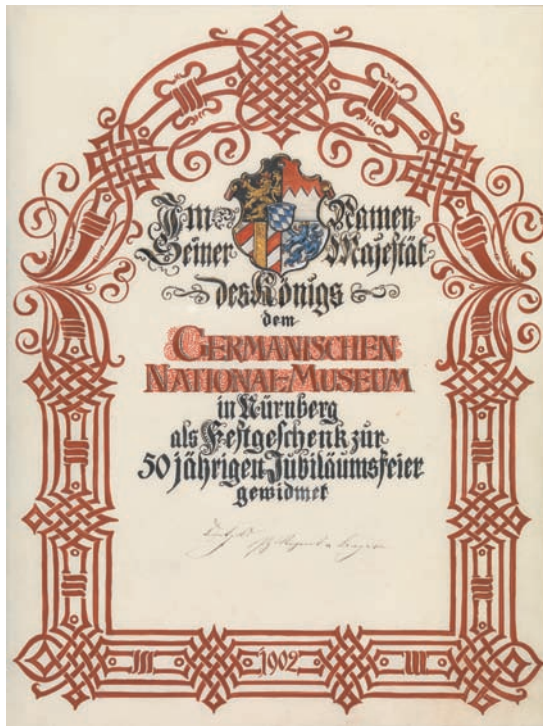 Im Namen
Seiner Majestät
des Königs
dem
GERMANISCHEN
NATIONAL-MUSEUM
in Nürnberg
als Festgeschenk zur
50 jährigen Jubiläumsfeier
gewidmet
1902